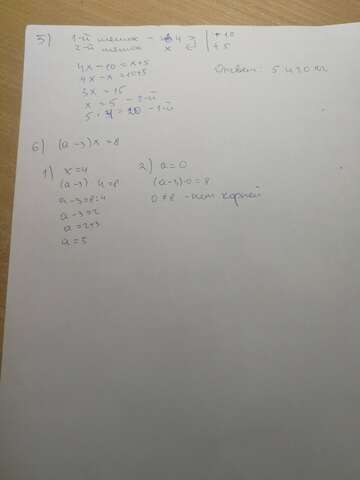 5) 1-й мешок - 4 | - 10
2-й мешок x | + 5
4x - 10 = x + 5
4x - x = 10 + 5
3x = 15
x = 5 - 2-й
5 · 4 = 20 - 1-й
Ответ: 5 и 20 кг
6) (a-3)x = 8
1) x = 4
(a-3) 4 = 8
a-3 = 8:4
a-3 = 2
a = 2+3
a = 5
2) a = 0
(a-3)·0 = 8
0 ≠ 8 - нет корней